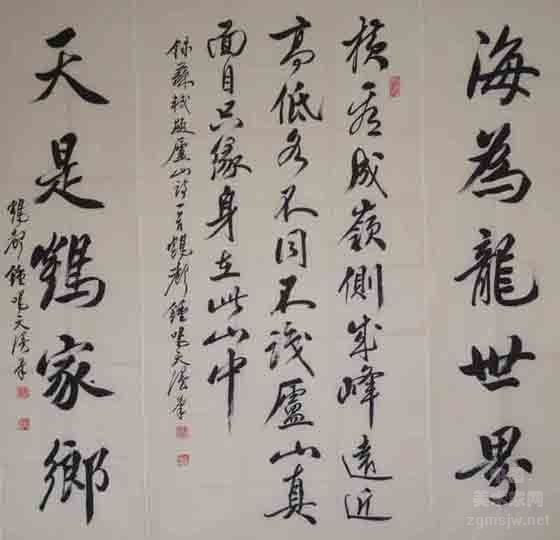 海為龍世界
橫看成嶺側成峰遠近
高低各不同不識廬山真
面目只緣身在此山中
錄蘇軾題廬山詩一首
天是鶴家鄉
美术家网
zgmsjw.net